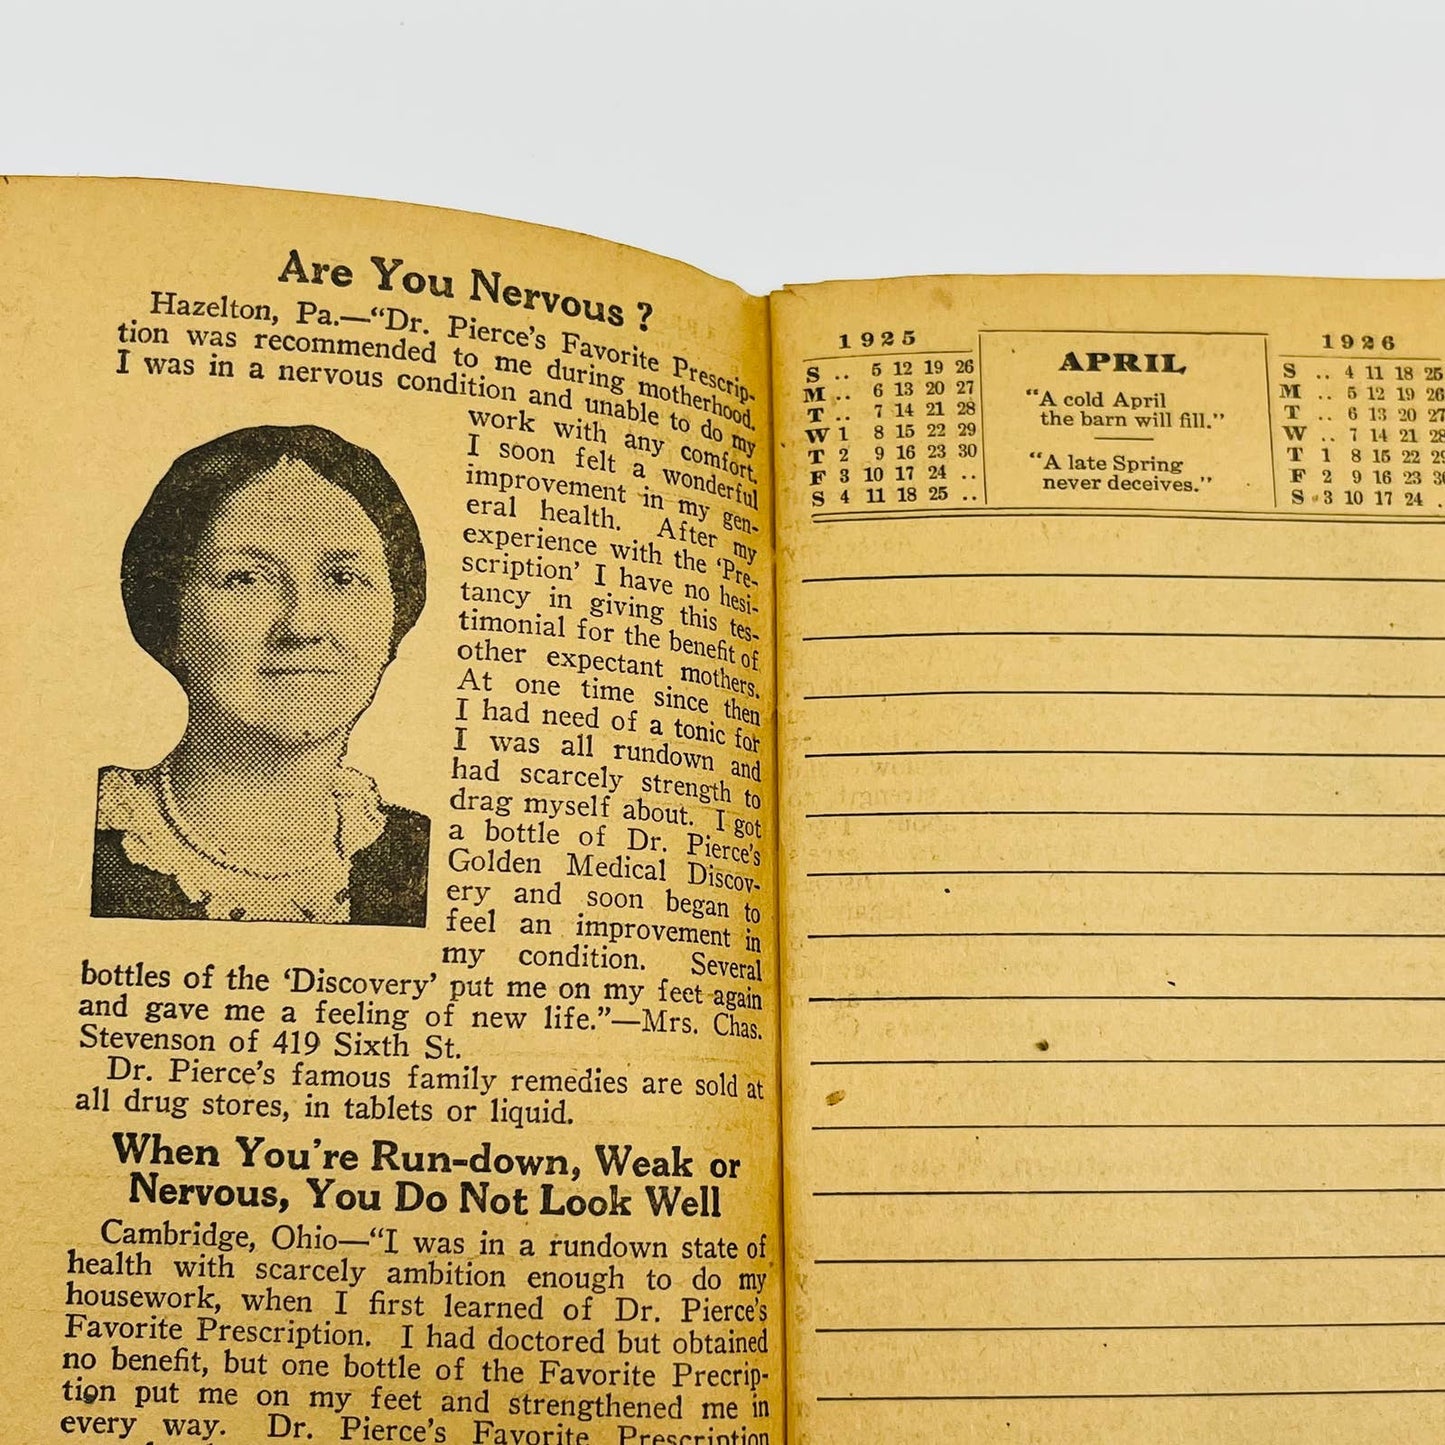 Are You Nervous ?
Hazelton, Pa.—“Dr. Pierce’s Favorite Prescrip-
tion was recommended to me during motherhood.
I was in a nervous condition and unable to do my
work with any comfort.
I soon felt a wonderful
improvement in my gen-
eral health. After my
experience with the ‘Pre-
scription’ I have no hesi-
tancy in giving this tes-
timonial for the benefit of
other expectant mothers.
At one time since then
I had need of a tonic for
I was all rundown and
had scarcely strength to
drag myself about. I got
a bottle of Dr. Pierce’s
Golden Medical Discov-
ery and soon began to
feel an improvement in
my condition. Several
bottles of the ‘Discovery’ put me on my feet again
and gave me a feeling of new life.”—Mrs. Chas.
Stevenson of 419 Sixth St.
Dr. Pierce’s famous family remedies are sold at
all drug stores, in tablets or liquid.
When You’re Run-down, Weak or
Nervous, You Do Not Look Well
Cambridge, Ohio—“I was in a rundown state of
health with scarcely ambition enough to do my
housework, when I first learned of Dr. Pierce’s
Favorite Prescription. I had doctored but obtained
no benefit, but one bottle of the Favorite Precrip-
tion put me on my feet and strengthened me in
every way. Dr. Pierce’s Favorite Prescription
1925
S .. 5 12 19 26
M .. 6 13 20 27
T .. 7 14 21 28
W 1 8 15 22 29
T 2 9 16 23 30
F 3 10 17 24 ..
S 4 11 18 25 ..
APRIL
“A cold April
the barn will fill.”
“A late Spring
never deceives.”
1926
S .. 4 11 18 25
M .. 5 12 19 26
T .. 6 13 20 27
W .. 7 14 21 28
T 1 8 15 22 29
F 2 9 16 23 30
S 3 10 17 24 .